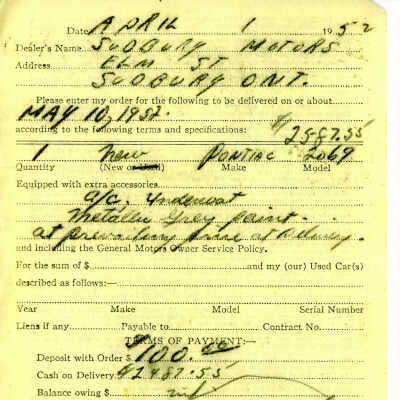 Date APRIL 1 1952
Dealer's Name SUDBURY MOTORS
Address ELM ST
SUDBURY ONT.
Please enter my order for the following to be delivered on or about
MAY 10, 1952.
according to the following terms and specifications: $2587.55
1 new PONTIAC 2069
Quantity (New or Used) Make Model
Equipped with extra accessories
a/c. Undercoat
Metallic Grey paint
at prevailing price at delivery.
and including the General Motors Owner Service Policy.
For the sum of $ and my (our) Used Car(s)
described as follows:—
Year Make Model Serial Number
Liens if any Payable to Contract No.
TERMS OF PAYMENT:—
Deposit with Order $ 100.00
Cash on Delivery $2487.55
Balance owing $ nil